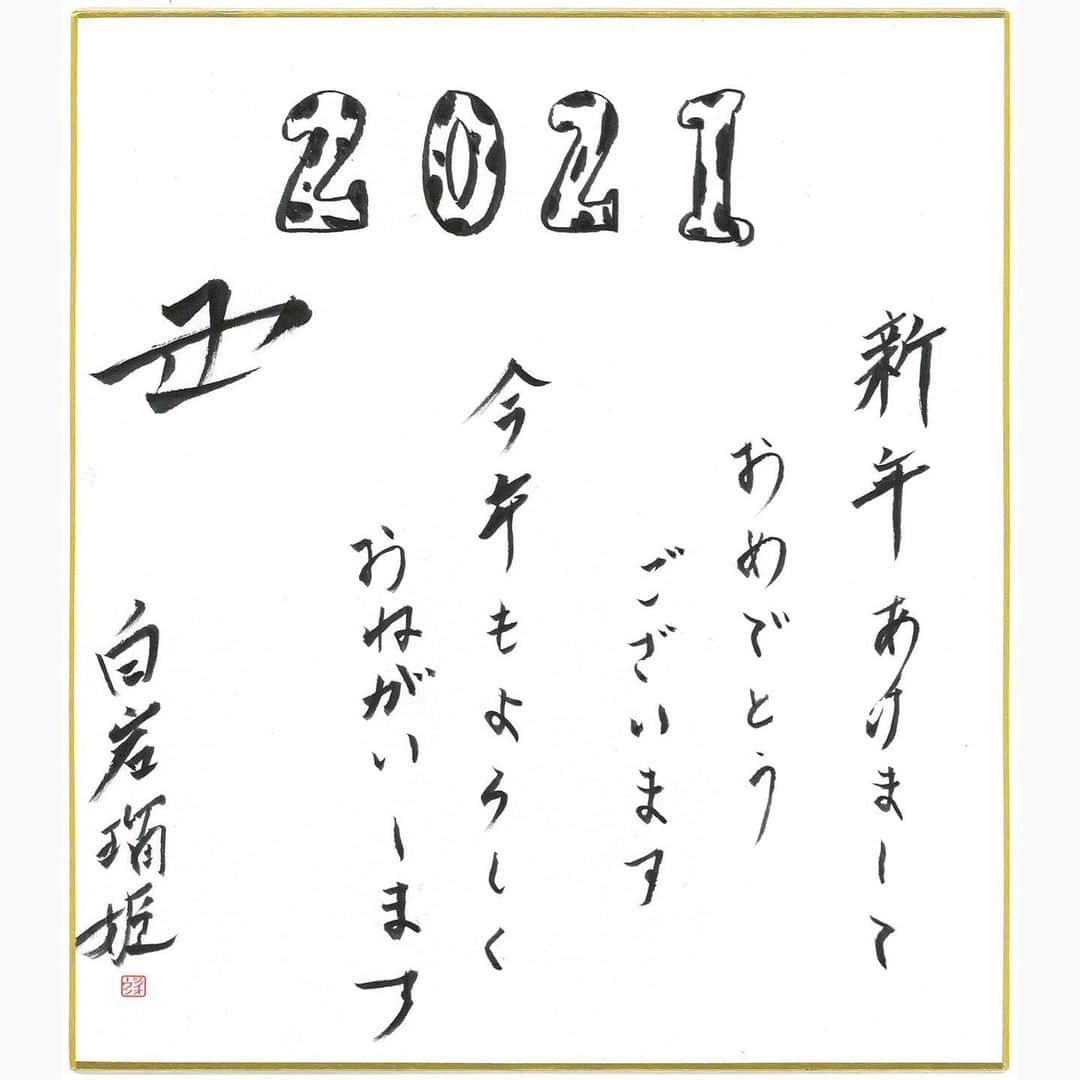 2021
新年あけまして
おめでとう
ございます
今年もよろしく
おねがいします
丑
白岩瑠姫